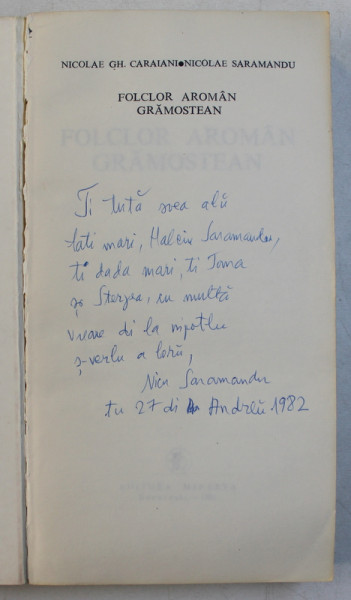 NICOLAE GH. CARAIANI●NICOLAE SARAMANDU
FOLCLOR AROMÂN
GRĂMOSTEAN
Ti tută soea alŭ
tati mari, Halciu Saramandu,
ti dada mari, ti Toma
și Stergea, cu multă
vreare di la nipotlu
ș-verlu a lorŭ,
Nicu Saramandu
tu 27 di Andreŭ 1982